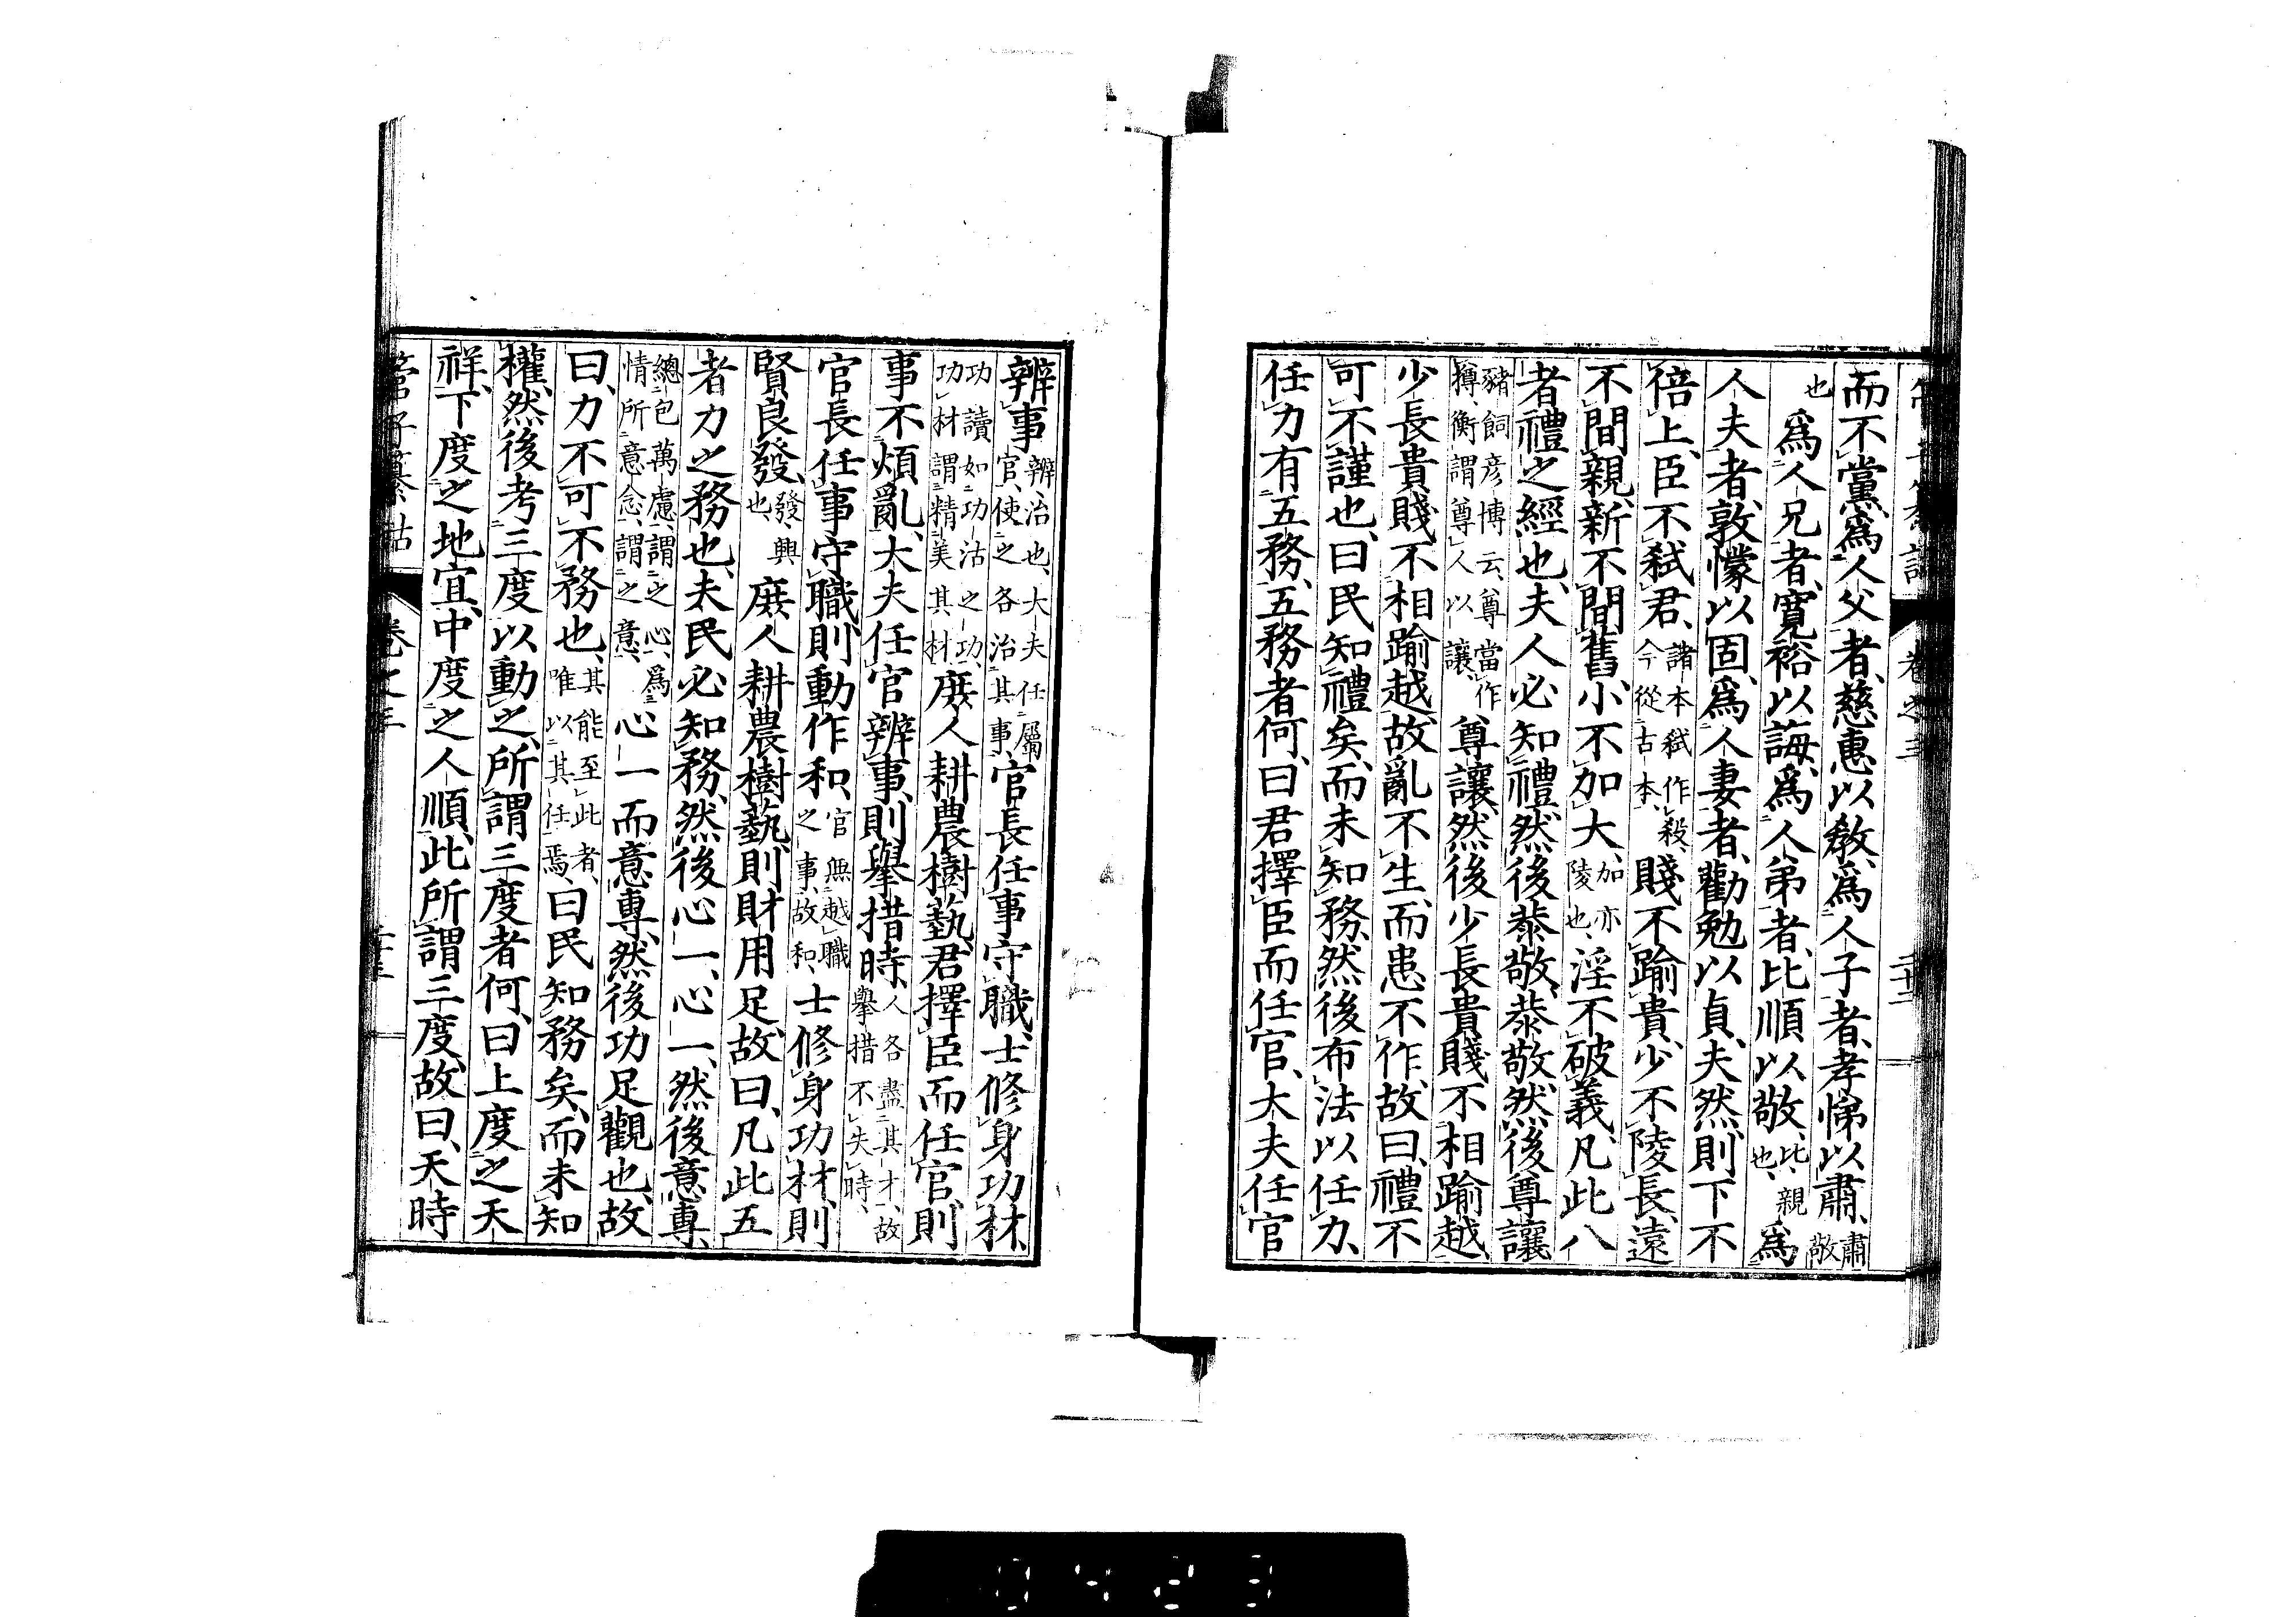 管子纂詁 卷之三 二十二
而不黨、爲人父者、慈惠以敎、爲人子者、孝悌以肅、肅敬
也爲人兄者、寬裕以誨、爲人弟者、比順以敬、比、親也、爲
人夫者、敦懞以固、爲人妻者、勸勉以貞、夫然則下不
倍上、臣不弑君、諸本弑作殺、今從古本、賤不踰貴、少不陵長、遠
不間親、新不間舊、小不加大、加亦陵也、淫不破義、凡此八
者禮之經也、夫人必知禮、然後恭敬、恭敬、然後尊讓
豬飼彦博云、尊當作撙、衡謂尊人以讓、尊讓、然後少長貴賤不相踰越、
少長貴賤不相踰越、故亂不生、而患不作、故曰、禮不
可不謹也、曰民知禮矣、而未知務、然後布法以任力、
任力有五務、五務者何、曰君擇臣而任官、大夫任官
辨事、辨、治也、大夫任屬官、使之各治其事、官長任事守職、士修身功材、
功讀如功沽之功、功材謂精美其材、庶人耕農樹藝、君擇臣而任官、則
事不煩亂、大夫任官辨事、則擧措時、人各盡其才、故擧措不失時、
官長任事守職、則動作和、官無越職之事、故和、士修身功材、則
賢良發、發、興也、庶人耕農樹藝、則財用足、故曰、凡此五
者力之務也、夫民必知務、然後心一、心一、然後意專、
總包萬慮、謂之心、爲情所意念、謂之意、心一而意專、然後功足觀也、故
曰、力不可不務也、其能至此者、唯以其任焉、曰民知務矣、而未知
權、然後考三度以動之、所謂三度者何、曰上度之天
祥、下度之地宜、中度之人順、此所謂三度、故曰、天時
管子纂詁 卷之三 二十三